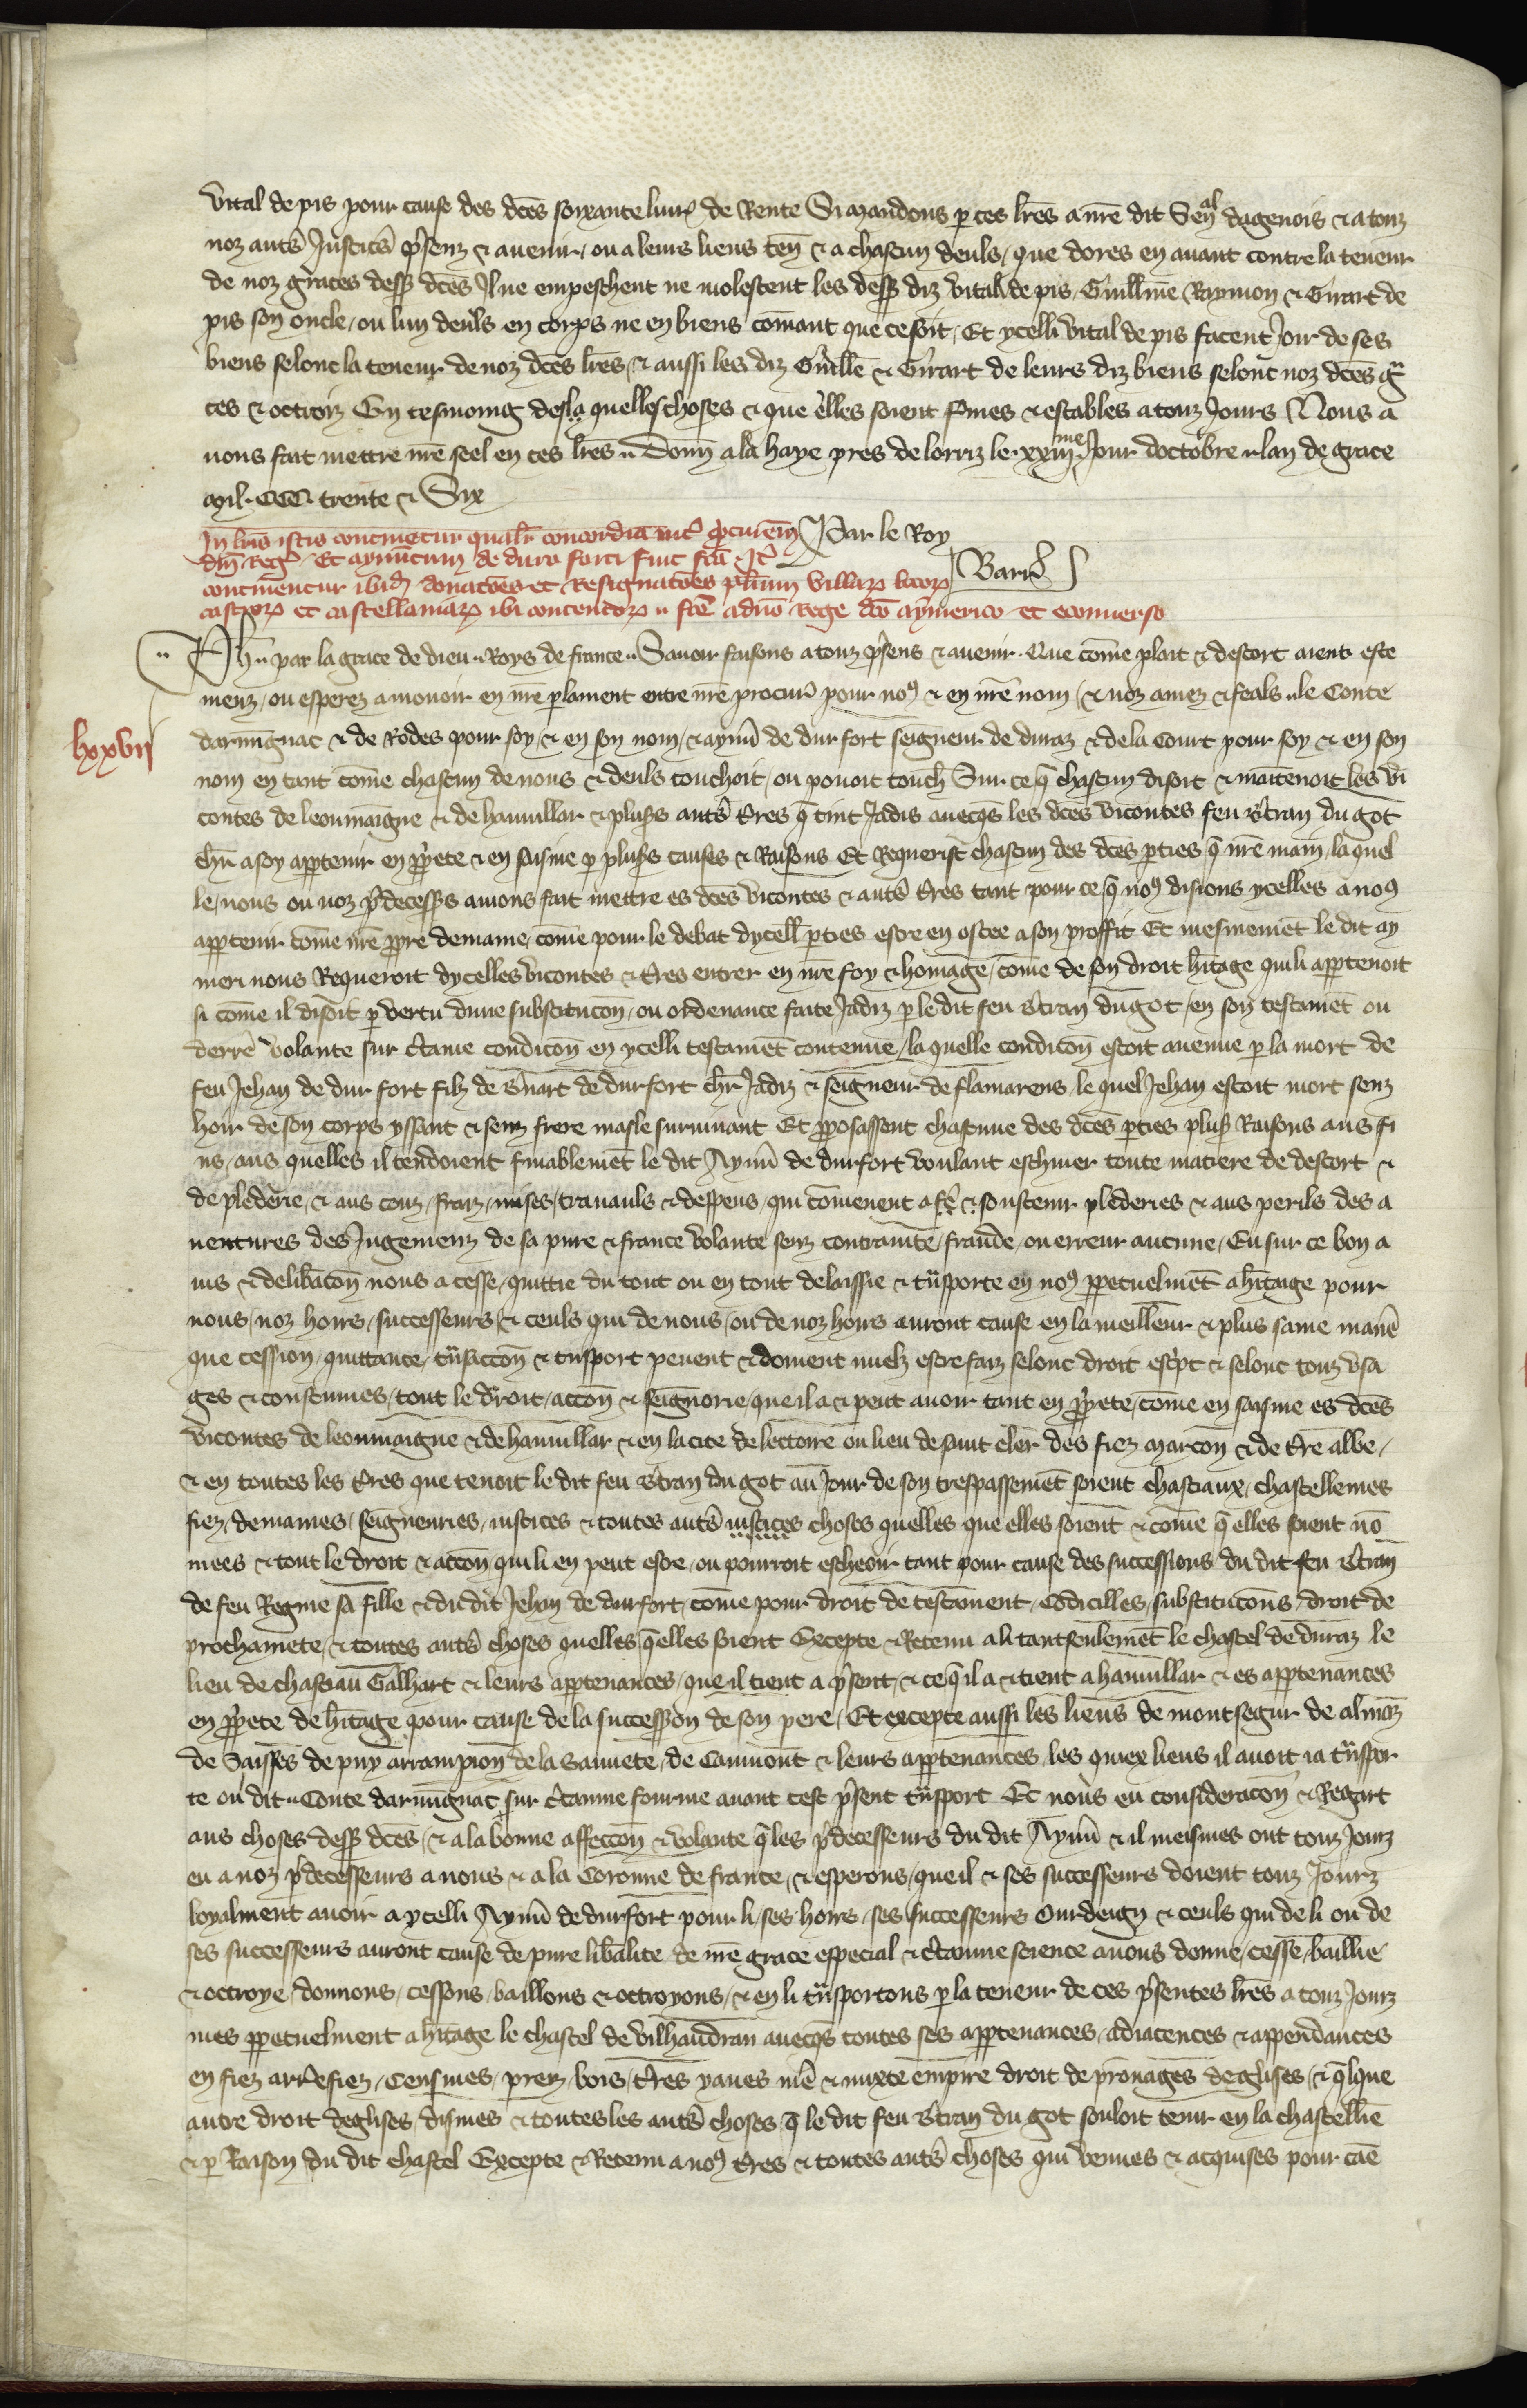 vital de pis pour cause des dces soixante livr de Rente Si mandons p ces lres a nre dit Senal dagenois & a touz
noz autr Justicr psenz & avenir, ou a leurs lieus ten & a chascun deuls, que dores en avant contre la teneur
de noz graces dess dces Il ne empeschent ne molestent les dess diz vital de pis, Guillme Raymon & Girart de
pis son oncle, ou lun deuls en corps ne en biens comant que ce soit, Et ycelli vital de pis facent Joir de ses
biens selonc la teneur de noz dces lres, & aussi les diz Guille & Girart de leurs diz biens selonc noz dces gra
ces & octroiz En tesmoing desla quelles choses & que elles soient fmes & estables a touz Jours Nous a
vons fait mettre nre seel en ces lres .. Donn a la haye pres de lorriz le .xxiiii.me Jour doctobre .. lan de grace
mil. CCC trente & Six
In lris istis continetur qualr concordia int pcurem Par le Roy
dni Reg Et aymericum de duro forti fuit fca. It
continentur ibid donacoes et Resignacoes plurium villar locor Barr
castror et castellaniar ibi contentor .. fce a dno Rege dco aymerico et econverso
Ph .. par la grace de dieu .. Roys de france .. Savoir faisons a touz psens & avenir. Que come plait & descort aient este
menz, ou esperez a mouvoir en nre plament entre nre procur pour nos & en nre nom, & noz amez & feals .. le Conte
lxxvii
darmignac & de Rodes pour soy, & en son nom, & aymi de dur fort seigneur de duraz & de la Court pour soy & en son
nom en tant come chascun de nous & deuls touchoit, ou povoit touch Sur ce q chascun disoit & maintenoit les vi
contes de leoumaigne & de hauvillar & plus autr tres q tint Jadis avecqs les dces vicontes feu Btran du got
chr a soy apptenir en ppete & en saisine p plus causes & Raisons Et Requerist chascun des dces pties q nre main, la quel
le, nous ou noz pdecess avions fait mettre es dces vicontes & autr tres tant pour ce q nos disions ycelles a nos
apptenir come nre ppre demaine, come pour le debat dycell pties estre en ostee a son proffit Et mesmemet le dit ay
meri nous Requeroit dycelles vicontes & tres entrer en nre foy & homage, come de son droit hitage qui li apptenoit
si come il disoit p vertu dune substitucon, ou ordenance faite Jadiz p le dit feu Btran du got, en son testamet ou
derre volante sur ctaine condicon en ycelli testamet contenue, la quelle condicon estoit avenue p la mort de
feu Jehan de dur fort filz de Bnart de dur fort chr Jadiz & seigneur de flamarens, le quel Jehan estoit mort senz
hoir de son corps yssant & senz frere masle survivant Et pposassent chascune des dces pties plus Raisons aus fi
ns, aus quelles il tendoient finablemet le dit Aymi de durfort voulant eschiver toute matiere de descort &
de plederie, & aus couz, fraiz, mises, travauls & despens, qui comenent a fe & soustenir plederies & aus perils des a
ventures des Jugemenz de sa pure & france volante senz contrainte, fraude, ou erreur aucune, Eu sur ce bon a
vis & delibacon nous a cesse, quittie du tout ou en tout delaissie & tnsporte en nos ppetuelmet a hitage pour
nous, noz hoirs, successeurs, & ceuls qui de nous, ou de noz hoirs auront cause en la meilleur & plus saine manie
que cession, quittance, tnsaccon & tnsport peuent & doivent mielz estre faiz selonc droit escpt & selonc touz usa
ges & coustumes, tout le droit, accon & seignorie, que il a & peut avoir tant en ppete, come en saisine es dces
vicontes de leoumaigne & de hauvillar & en la cite de lectoire ou lieu de saint cler des fiez marcon & de tre albe,
& en toutes les tres que tenoit le dit feu Btran du got au Jour de son trespassemet soient chastiaux, chastellenies
fiez, demaines, seigneuries, justices & toutes autr justices choses quelles que elles soient & come q elles soient no
mees & tout le droit & accon qui li en peut estre, ou pourroit escheoir tant pour cause des successions du dit feu Btran
de feu Regine sa fille & du dit Jehan de durfort, come pour droit de testament, codicilles, substitucons, droit de
prochainete, & toutes autr choses quelles qelles soient Excepte & Retenu a li tant seulemet le chastel de duraz le
lieu de chastiau Galhart & leurs apptenances, que il tient a psent, & ce q il a & tient a hauvillar & es apptenances
en ppete de hitage pour cause de la succession de son pere, Et excepte aussi les lieus de montsegur de almaz
de Saisses de puy arrampion de la sauvete, de Caumont & leurs apptenances, les quiex lieus il avoit ia tnspor
te ou dit .. Conte darmignac sur ctainne fourme avant cest psent tnsport Et nous eu consideracon & Regart
aus choses dess dces, & a la bonne affeccon & volante q les pdecesseurs du dit Aymi & il meismes ont touz Jourz
eu a noz pdecesseurs a nous & a la Coronne de france, & esperons, que il & ses successeurs doient touz Jourz
loyalment avoir a ycelli Aymi de durfort pour li, ses hoirs, ses successeurs Ourdeign & ceuls qui de li ou de
ses successeurs auront cause de pure liberalite de nre grace especial & ctainne science avons donne, cesse, baillie
& octroye, donnons, cessons, baillons & octroyons, & en li tnsportons p la teneur de ces psentes lres a touz Jourz
mes ppetuelment a hitage le chastel de vilhaudran avecqs toutes ses apptenances, adiacences & appendances
en fiez arrefiez, Censives, prez, bois, tres yaues me & mixte empire droit de pronages deglises, & qlque
autre droit deglises, dismes & toutes les autr choses q le dit feu Btran du got souloit tenir en la chastellie
& p Raison du dit chastel Excepte & Retenu a nos tres & toutes autr choses qui venues & acquises pour cae